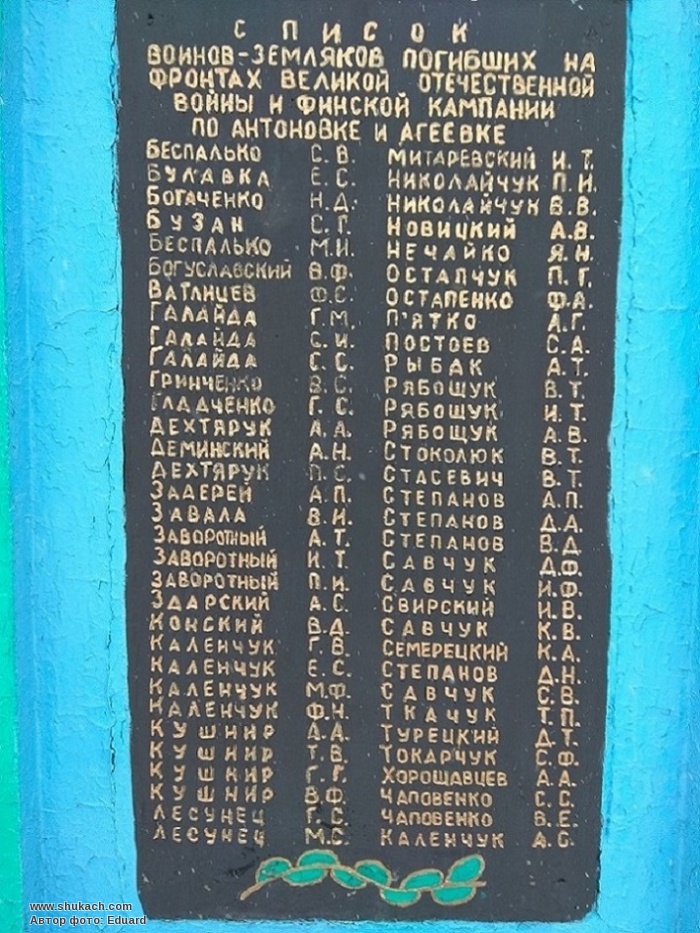 СПИСОК
ВОИНОВ-ЗЕМЛЯКОВ ПОГИБШИХ НА
ФРОНТАХ ВЕЛИКОЙ ОТЕЧЕСТВЕННОЙ
ВОЙНЫ И ФИНСКОЙ КАМПАНИИ
ПО АНТОНОВКЕ И АГЕЕВКЕ
БЕСПАЛЬКО С. В.
БУЛАВКА Е. С.
БОГАЧЕНКО Н. Д.
БУЗАН С. Г.
БЕСПАЛЬКО М. И.
БОГУСЛАВСКИЙ В. Ф.
ВАТЛИЦЕВ Ф. С.
ГАЛАЙДА Г. М.
ГАЛАЙДА С. И.
ГАЛАЙДА С. С.
ГРИНЧЕНКО В. С.
ГЛАДЧЕНКО Г. С.
ДЕХТЯРУК А. А.
ДЕМИНСКИЙ А. Н.
ДЕХТЯРУК П. С.
ЗАДЕРЕЙ А. П.
ЗАВАЛА В. И.
ЗАВОРОТНЫЙ А. Т.
ЗАВОРОТНЫЙ И. Т.
ЗАВОРОТНЫЙ П. И.
ЗДАРСКИЙ А. С.
КОНСКИЙ В. Д.
КАЛЕНЧУК Г. В.
КАЛЕНЧУК Е. С.
КАЛЕНЧУК М. Ф.
КАЛЕНЧУК Ф. Н.
КУШНИР Д. А.
КУШНИР Т. В.
КУШНИР Г. Г.
КУШНИР В. Ф.
ЛЕСУНЕЦ Г. С.
ЛЕСУНЕЦ М. С.
МИТАРЕВСКИЙ И. Т.
НИКОЛАЙЧУК П. И.
НИКОЛАЙЧУК В. В.
НОВИЦКИЙ А. В.
НЕЧАЙКО Я. Н.
ОСТАПЧУК П. Г.
ОСТАПЕНКО Ф. А.
П'ЯТКО А. Г.
ПОСТОЕВ С. А.
РЫБАК А. Т.
РЯБОЩУК В. Т.
РЯБОЩУК И. Т.
РЯБОЩУК А. В.
СТОКОЛЮК В. Т.
СТАСЕВИЧ В. Т.
СТЕПАНОВ А. П.
СТЕПАНОВ Д. А.
СТЕПАНОВ В. Д.
САВЧУК Д. Ф.
САВЧУК И. Ф.
СВИРСКИЙ И. В.
САВЧУК К. В.
СЕМЕРЕЦКИЙ К. А.
СТЕПАНОВ Д. Н.
САВЧУК С. В.
ТКАЧУК Т. П.
ТУРЕЦКИЙ Д. Т.
ТОКАРЧУК С. Ф.
ХОРОЩАВЦЕВ А. А.
ЧАПОВЕНКО С. С.
ЧАПОВЕНКО В. Е.
КАЛЕНЧУК А. С.
www.shukach.com
Автор фото: Eduard